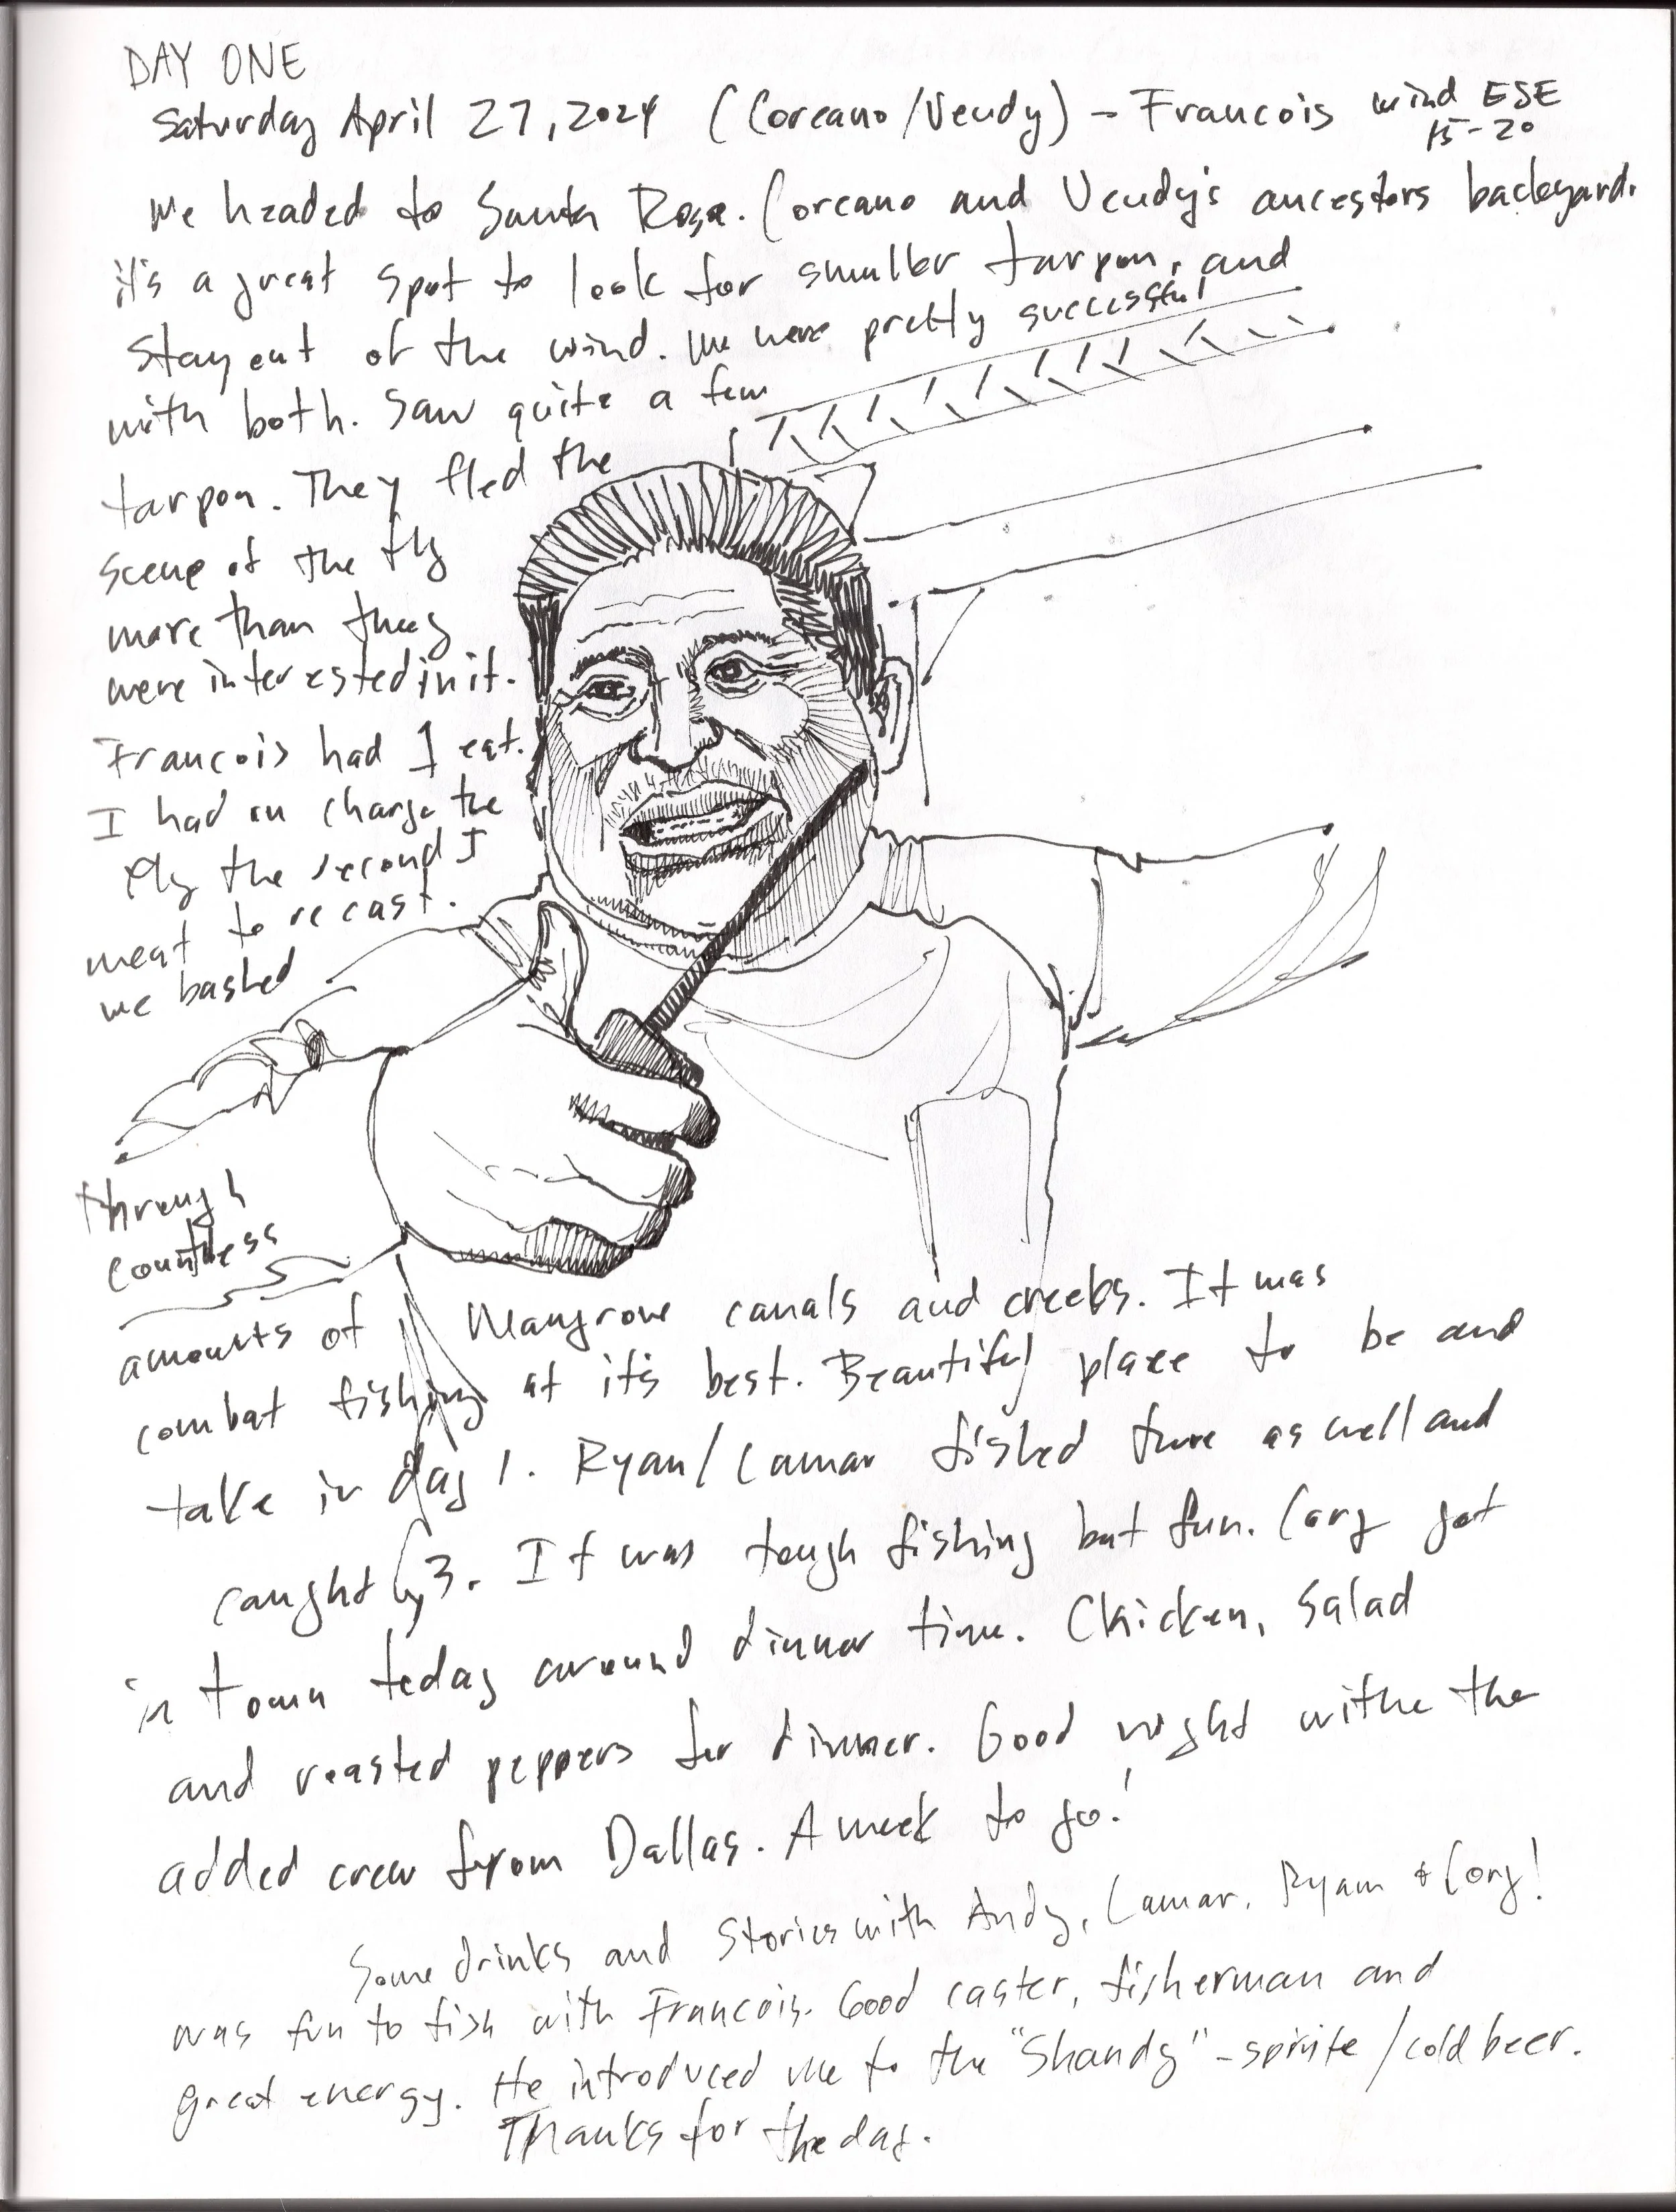 DAY ONE
Saturday April 27, 2024 (Coreano/Vendy) - Francois wind ESE
15-20
We headed to Santa Rosa. Coreano and Vendy's ancestors backyard.
it's a great spot to look for smaller tarpon, and
stay out of the wind. We were pretty successful
with both. Saw quite a few
tarpon. They fled the
scene of the fly
more than they
were interested in it.
Francois had 1 eat.
I had on charge the
fly the second I
meat to recast.
we bashed
through
countless
amounts of Mangrove canals and creeks. It was
combat fishing at it's best. Beautiful place to be and
take in day 1. Ryan/Lamar fished there as well and
caught 3. It was tough fishing but fun. Cory got
in town today around dinner time. Chicken, salad
and roasted peppers for dinner. Good night withe the
added crew from Dallas. A week to go!
Some drinks and stories with Andy, Lamar, Ryan + Cory!
was fun to fish with Francois. Good caster, fisherman and
great energy. He introduced me to the "Shandy" - sprite/cold beer.
Thanks for the day.